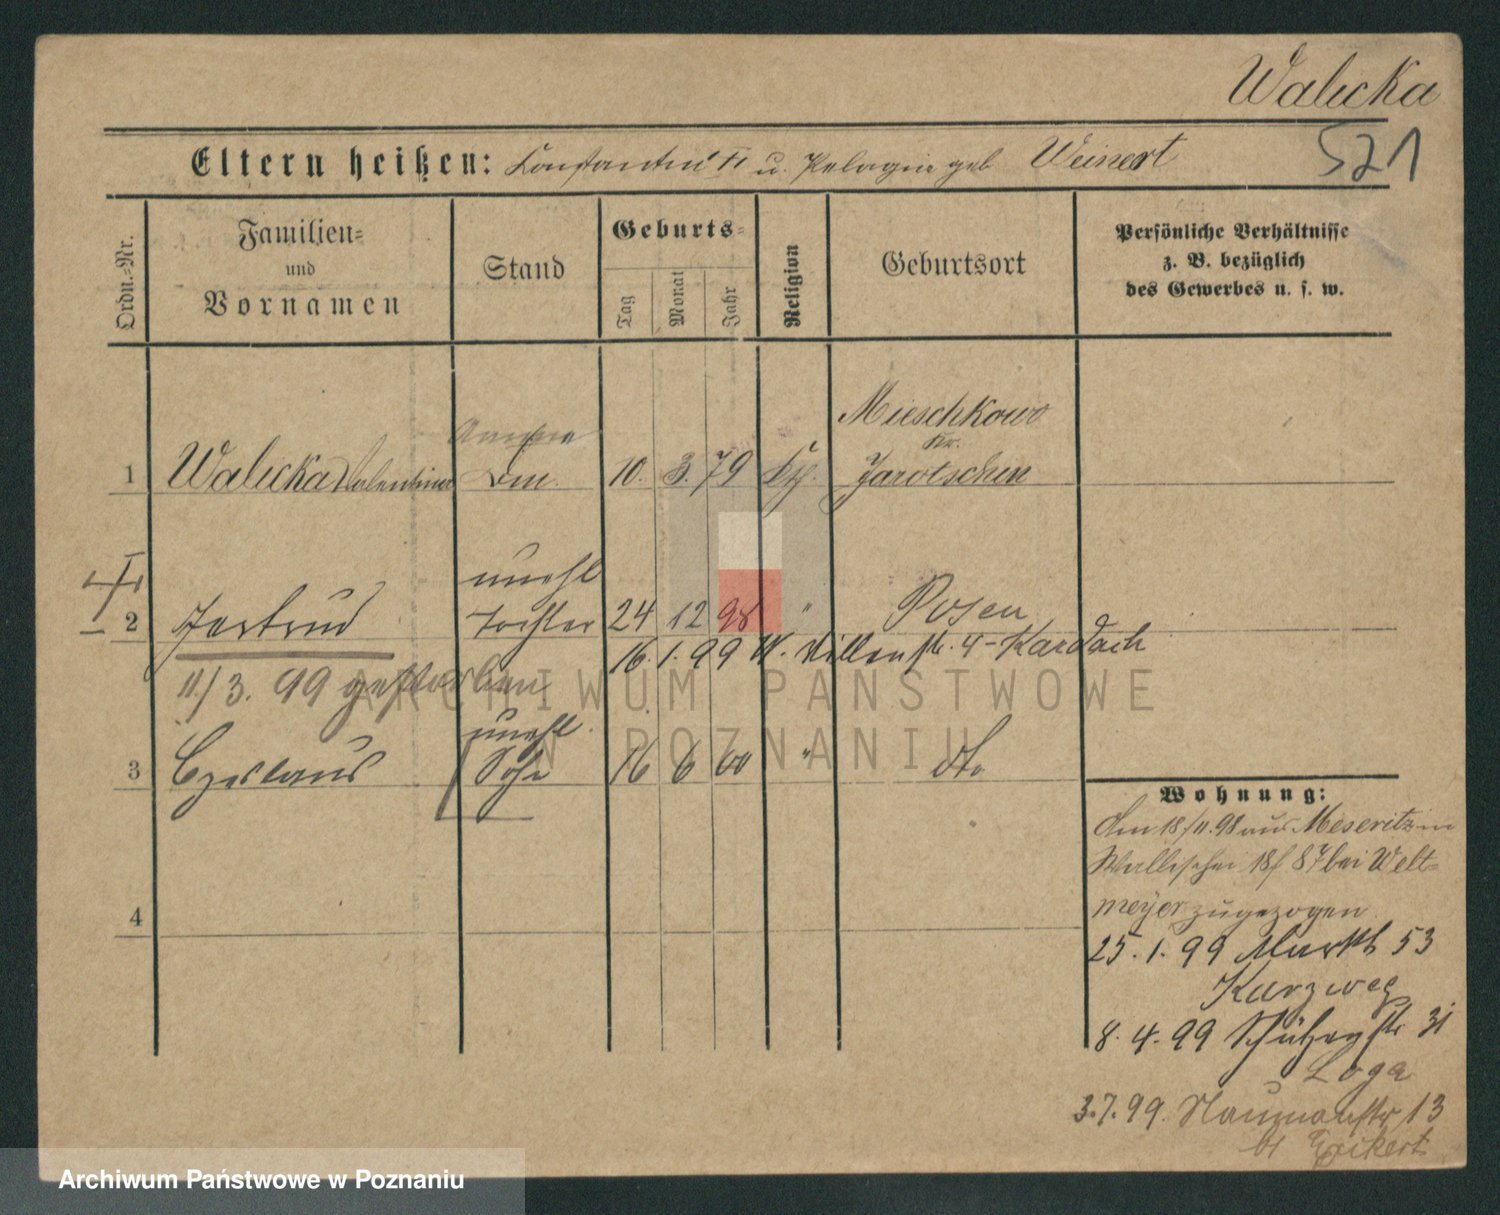 Walicka
521
Eltern heißen: Constantin u. Pelagia geb Weinert
Ordn.=Nr.
Familien=
und
Vornamen
Stand
Geburts=
Tag
Monat
Jahr
Religion
Geburtsort
Persönliche Verhältnisse
z. B. bezüglich
des Gewerbes u. s. w.
Amme
Mieschkowo
Kr.
1 Walicka Valentina 10. 3. 79 Kth. Jarotschin
unehl
2 Gertrud Tochter 24 12 98 " Posen
16. 1. 99 W. Villenstr. 4 - Kardach
11/3. 99 gestorben
unehl.
3 Czeslaus Sohn 16 6 00 " dto
4
Wohnung:
Am 18/11. 98 aus Meseritz in
Wallischei 18/87 bei Welt=
meyer zugezogen
25. 1. 99 Markt 53
Kurzweg
8. 4. 99 Schützenstr 31
Loga
3. 7. 99. Naumannstr 13
bei
ARCHIWUM PAŃSTWOWE
W POZNANIU
Archiwum Państwowe w Poznaniu